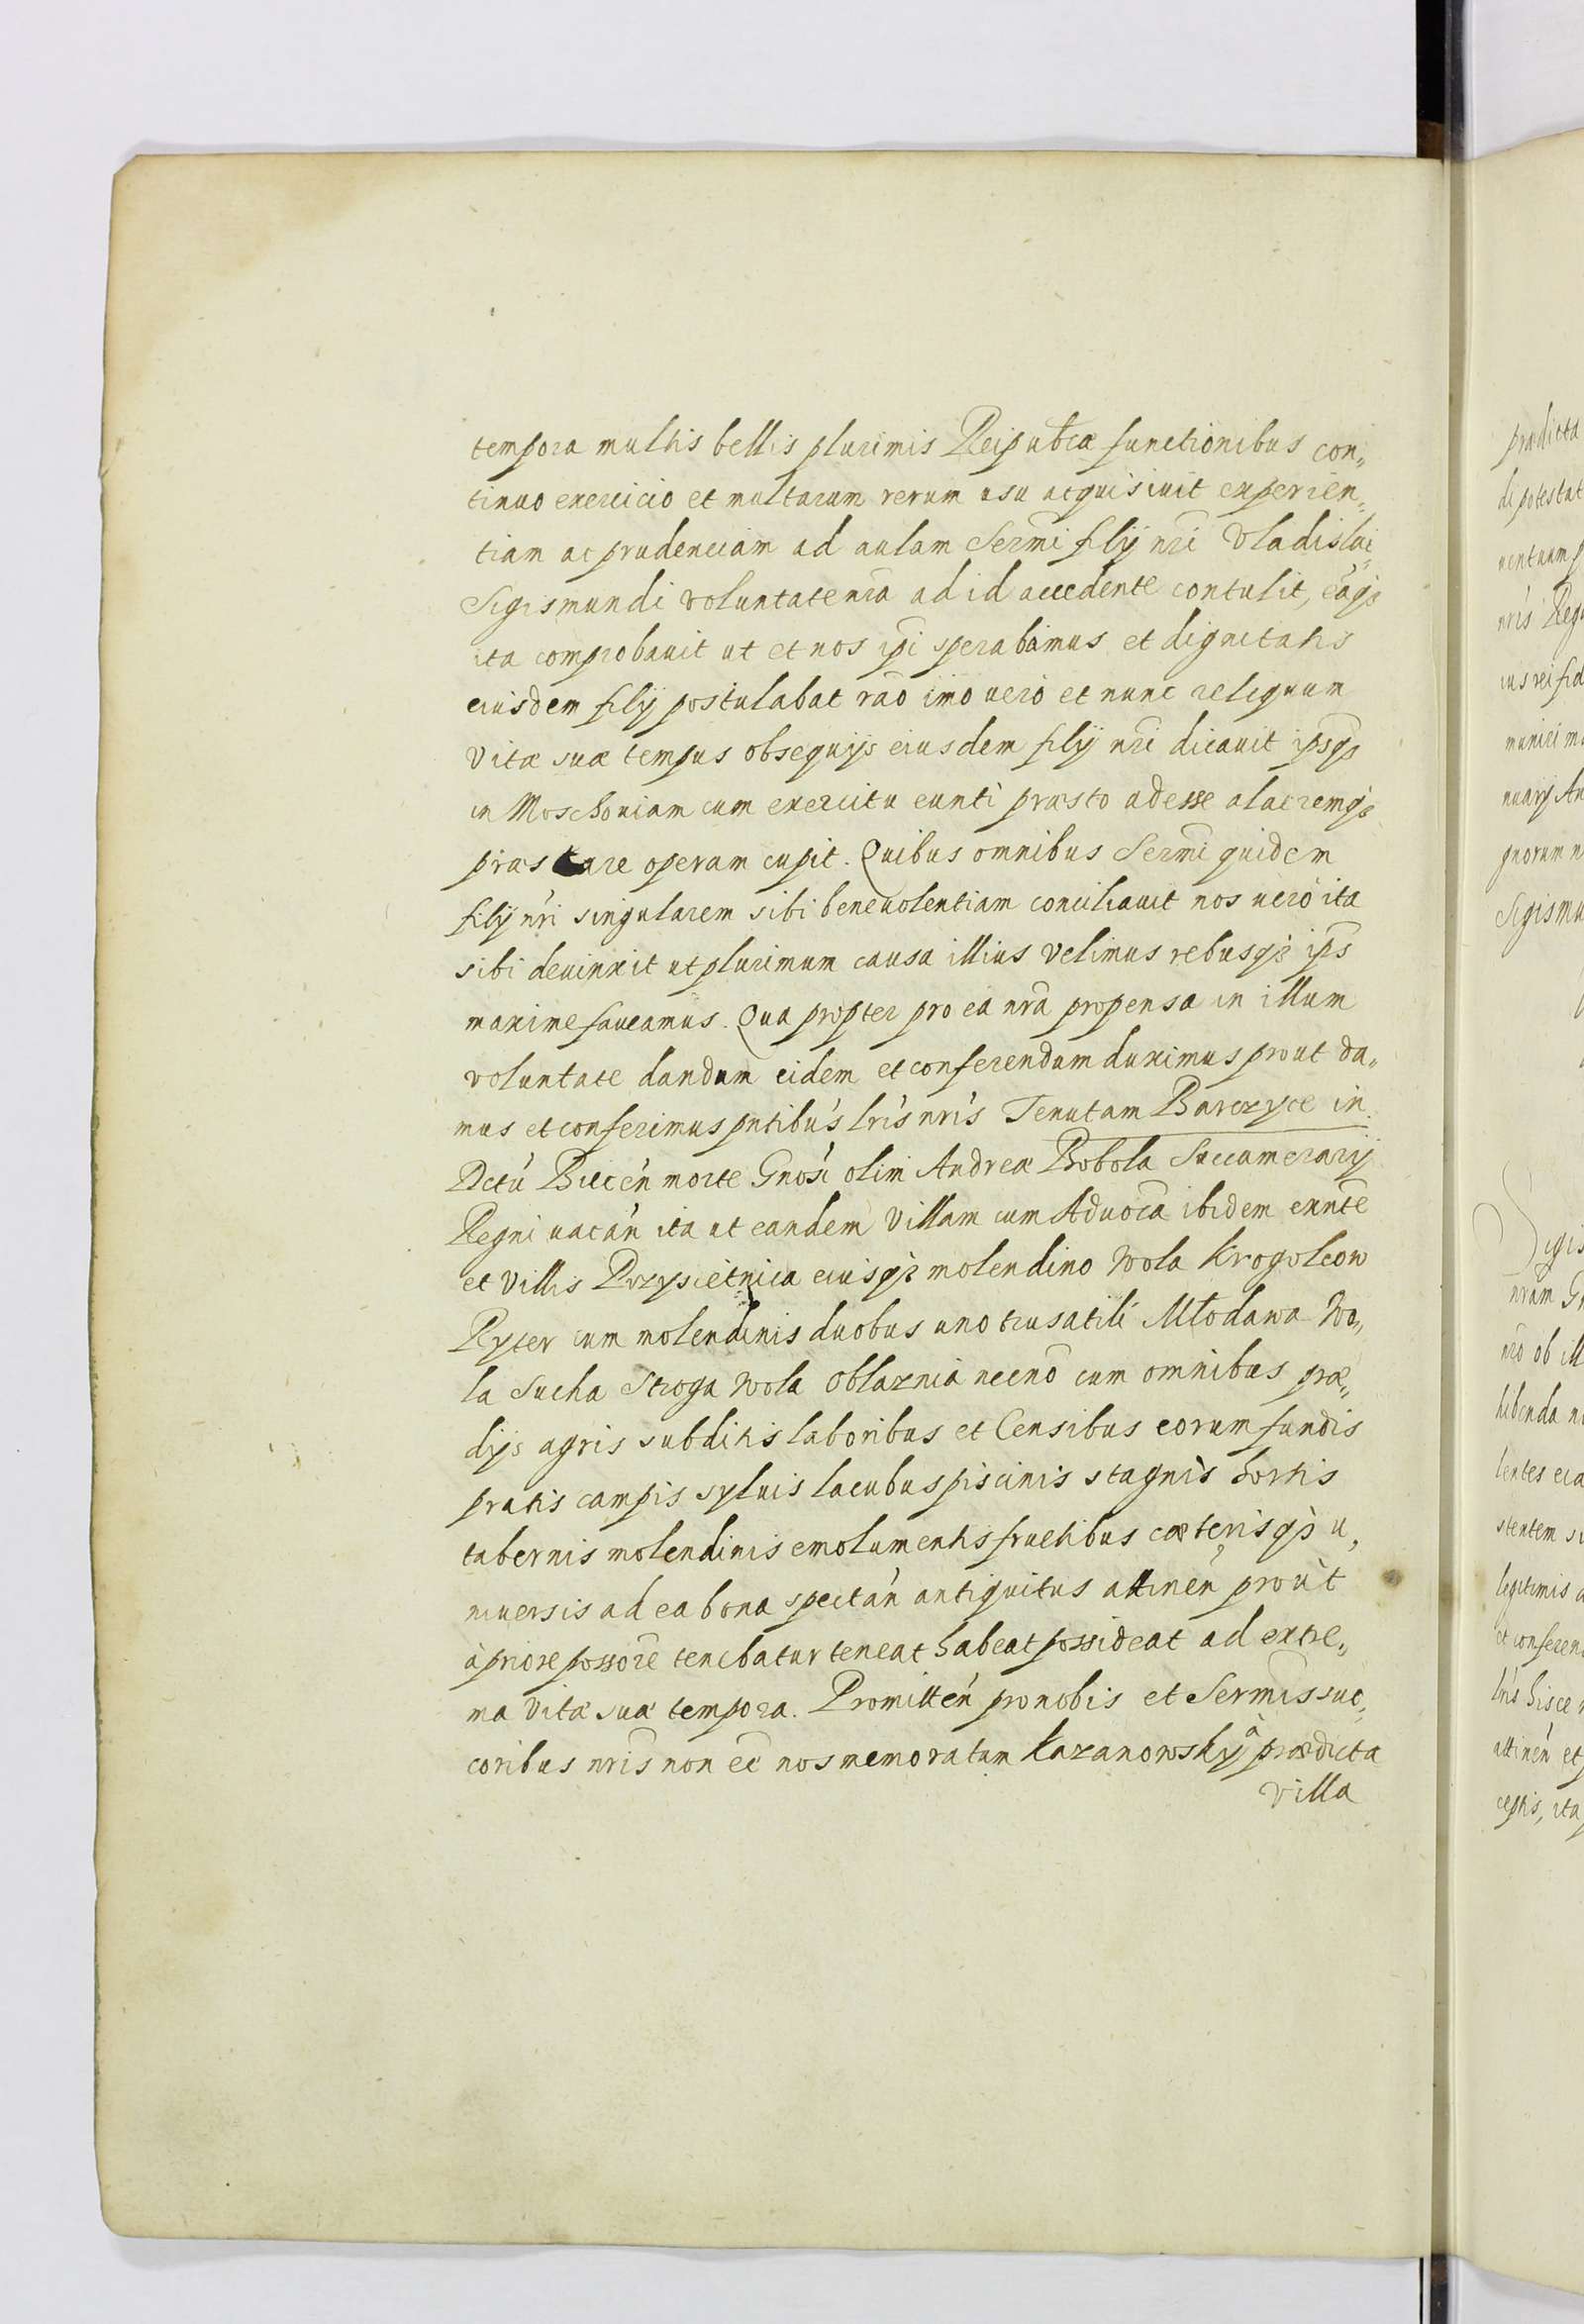 tempora multis bellis plurimis Reipubcæ functionibus con„
tinuo exercicio et multarum rerum usu acquisiuit experien„
tiam ac prudenciam ad aulam Sermi filij nri Vladislai
Sigismundi voluntate nra ad id accedente contulit, eaqȝ
ita comprobauit ut et nos ipi sperabamus et dignitatis
eiusdem filij postulabat rao imo uero et nunc reliquum
Vitæ suæ tempus obsequijs eiusdem filij nri dicauit ipsqȝ
in Moschouiam cum exercitu eunti præsto adesse alacremqȝ
præstare operam cupit. Quibus omnibus Sermi quidem
filij nri singularem sibi beneuolentiam conciliauit nos uero ita
sibi deuinxit ut plurimum causa illius Velimus rebusqȝ ips
maxime faueamus. Qua propter pro ea nra propensa in illum
voluntate dandum eidem et conferendum duximus prout da„
mus et conferimus pntibus lris nris Tenutam Barczyce in
Dctu Biecen morte Gnosi olim Andreæ Bobola Succamerarij
Regni uacan ita ut eandem Villam cum Aduoca ibidem exnte
et Villis Przysietnica eiusqȝ molendino Wola Krogolcow
Ryter cum molendinis duobus uno trusatili Młodawa Wo„
la Sucha Stroga Wola Oblaznia necno cum omnibus præ„
dijs agris subditis laboribus et Censibus eorum fundis
pratis campis syluis lacubus piscinis stagnis hortis
tabernis molendinis emolumentis fructibus cæterisqȝ u„
niuersis ad ea bona spectan antiquitus attinen prout
à priore possore tenebatur teneat habeat possideat ad extre„
ma Vitæ suæ tempora. Promitten pro nobis et Sermis suc„
coribus nris non ee nos memoratum Kazanowsky à prædicta
Villa
prædicta
di potestat
uentuam p
nris Reg
ius rei fid
muniri m
nuarij An
gnorum n
Sigismu
Sigis
nram G
nro ob ill
hibenda n
lentes eia
stentem su
legitimis a
et conferen
lris hisce
attinen et
ceptis, ita